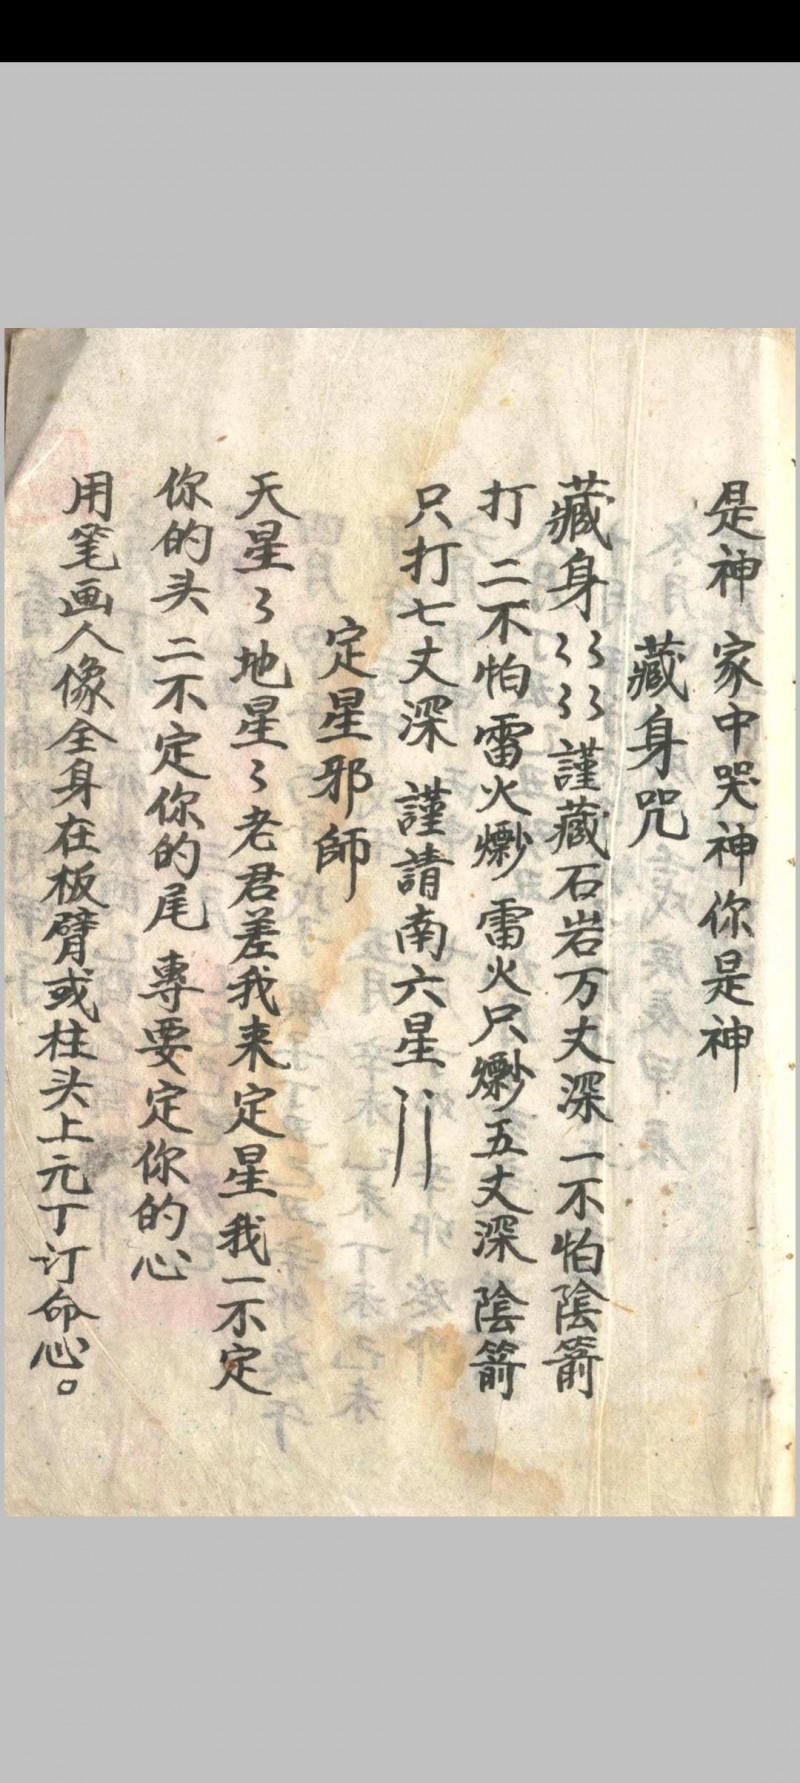 是神 家中哭神你是神
藏身咒
藏身〻〻〻〻謹藏石岩万丈深一不怕陰箭
打 二不怕 雷火爒 雷火只爒五丈深 陰箭
只打七丈深 謹請南六星
定星邪師
天星〻地星〻老君差我来定星我一不定
你的头 二不定你的尾 專要定你的心
用笔画人像全身在板臂或柱头上元丁订命心。